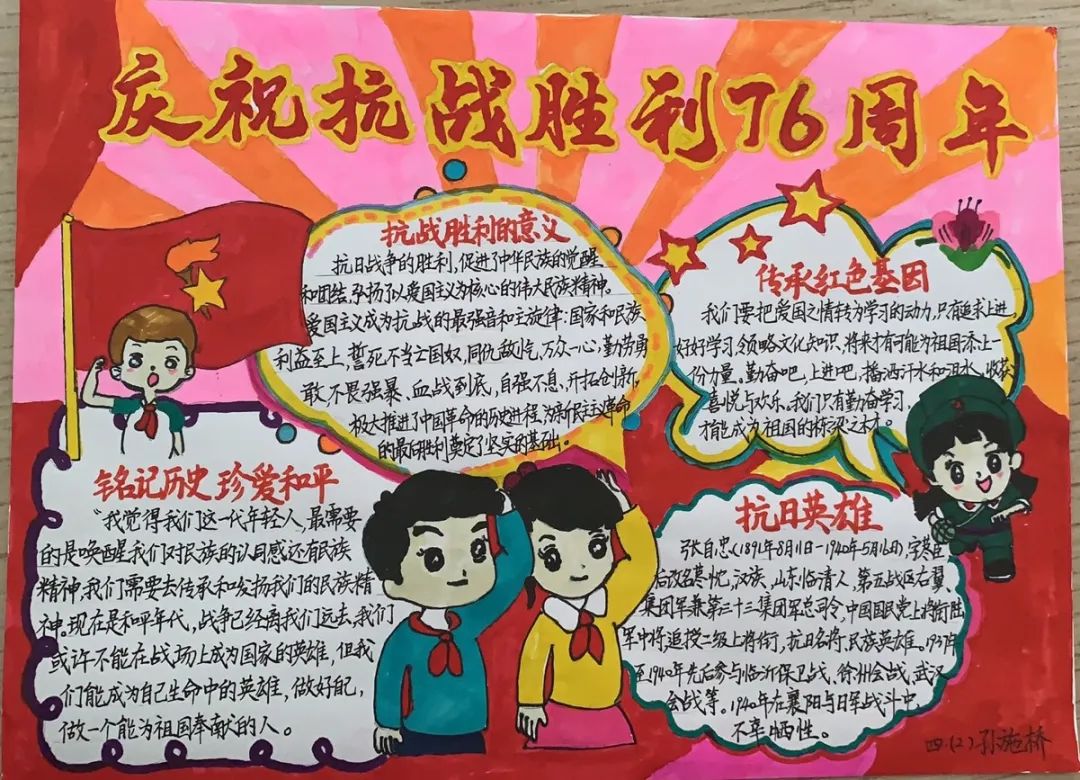 庆祝抗战胜利76周年
抗战胜利的意义
抗日战争的胜利,促进了中华民族的觉醒
和团结,弘扬了以爱国主义为核心的伟大民族精神。
爱国主义成为抗战的最强音和主旋律:国家和民族
利益至上,誓死不当亡国奴,同仇敌忾,万众一心,勤劳勇
敢、不畏强暴、血战到底、自强不息、开拓创新,
极大推进了中国革命的历史进程,为新民主主义革命
的最后胜利奠定了坚实的基础。
传承红色基因
我们要把爱国之情转为学习的动力,只有追求上进,
好好学习,领略文化知识,将来才有可能为祖国添上一
份力量。勤奋吧,上进吧,播洒汗水和泪水,收获
喜悦与欢乐。我们只有勤奋学习,
才能成为祖国的栋梁之才。
铭记历史 珍爱和平
“我觉得我们这一代年轻人,最需要
的是唤醒我们对民族的认同感还有民族
精神,我们需要去传承和发扬我们的民族精
神。现在是和平年代,战争已经离我们远去,我们
或许不能在战场上成为国家的英雄,但我
们能成为自己生命中的英雄,做好自己,
做一个能为祖国奉献的人。
抗日英雄
张自忠(1891年8月11日-1940年5月16日),字荩臣
后改名荩忱,汉族,山东临清人,第五战区右翼
集团军兼第三十三集团军总司令,中国国民党上将衔陆
军中将,追授二级上将衔,抗日名将,民族英雄。1937年
至1940年先后参与临沂保卫战、徐州会战、武汉
会战等。1940年在襄阳与日军战斗中,
不幸牺牲。
四.(2) 孙施桥